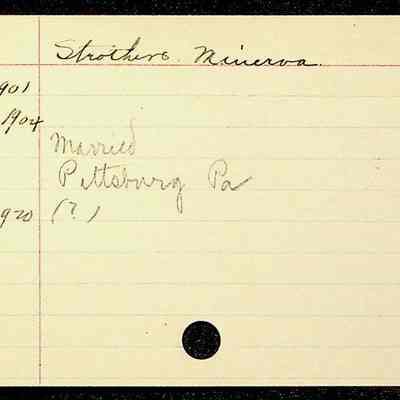 Strothers. Minerva.
901
1904
Married
Pittsburg Pa
920 (?)